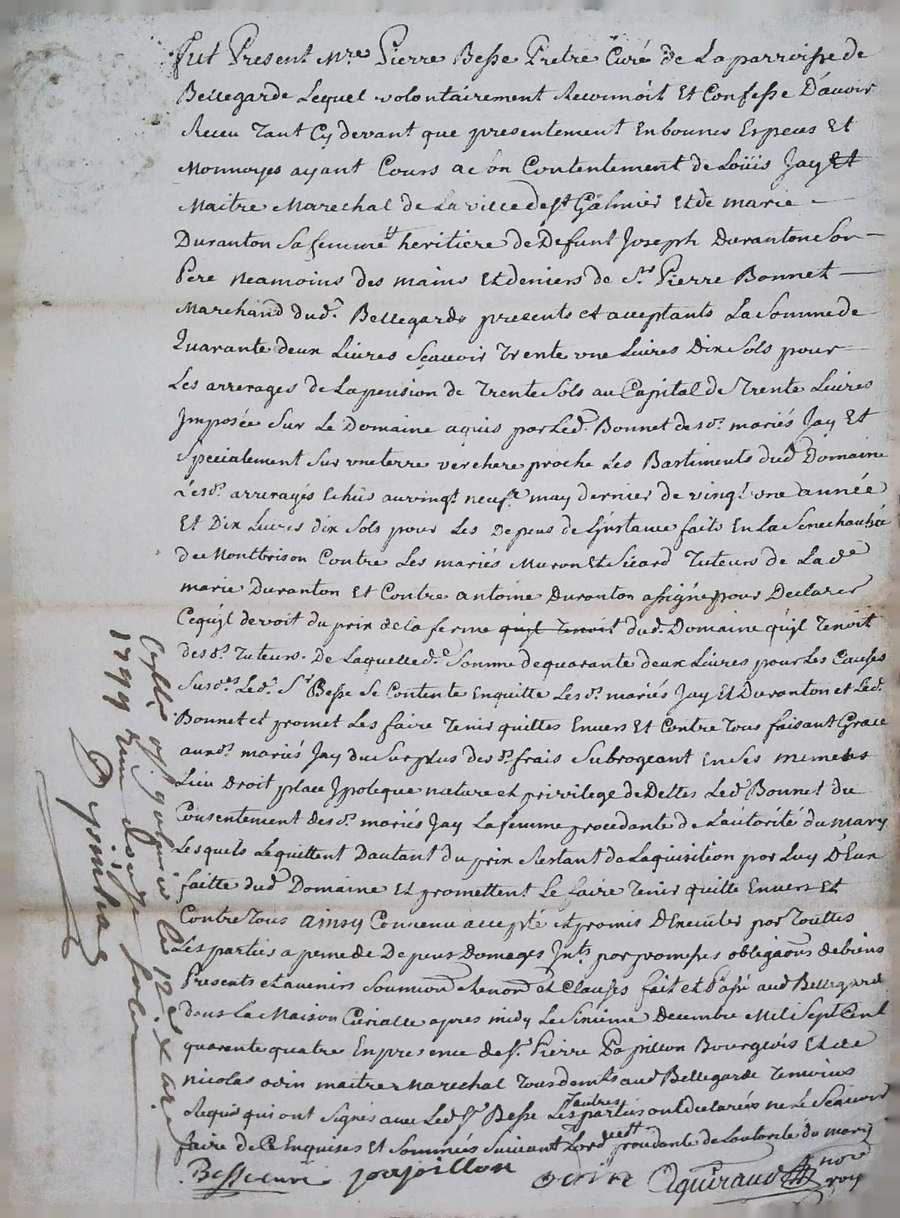 Fut Present Mre Pierre Besse Pretre Curé de La parroisse de
Bellegarde Lequel volontairement Reconnoit Et Confesse D'avoir
Receu Tant Cy devant que presentement En bonnes Especes Et
Monnoyes ayant Cours a son Contentement de Loüis Jay Et
Maitre Marechal de La ville de St Galmier Et de marie
Duranton Sa femme heritiere de Defunt Joseph Duranton Son
Pere neamoins des mains Et deniers de Sr Pierre Bonnet
Marchand dud. Bellegarde presents et aceptants La Somme de
Quarante deux Livres Sçavoir Trente une Livres Dix Sols pour
Les arrerages de La pension de Trente Sols au Capital de Trente Livres
Imposée Sur Le Domaine aquis par Led. Bonnet desd. mariés Jay Et
Specialement Sur une terre verchere proche Les Bastiments dud Domaine
Lesd. arreragés Echûs au vingt neufe may dernier de vingt une année
Et Dix Livres dix Sols pour Les Depens de L'instance faits En La Senechaussée
de Montbrison Contre Les mariés Muron Et Sicard Tuteurs de Lade
marie Duranton Et Contre antoine Duranton assigné pour Declarer
Ce qu'jl devoit du prix de la ferme quil Tenoit dud. Domaine qu'jl Tenoit
desd. Tuteurs. De Laquelle de Somme de quarante deux Livres pour Les Causes
Susdes Led. Sr Besse Se Contente Enquitte Lesd. mariés Jay Et Duranton et Led.
Bonnet et promet Les faire Tenir quittes Envers Et Contre Tous faisant Grace
auxd. mariés Jay du Surplus desd. frais Subrogeant En Ses memes
Lieu Droit place Jpoteque nature et privilege de Dettes Led. Bonnet du
Consentement desd. mariés Jay La femme procedante de L'autorité du mary
Lesquels Le quittent Dautant du prix Restant de Laquisition par Luy D'Eux
faitte dud. Domaine Et promettent Le faire Tenir quitte Envers Et
Contre Tous ainsy Convenu accepté et promis D'Executer par Touttes
Les parties a peine de Depens Domages Jnts. par promesses obligaons de biens
Presents et avenirs Soumion Renonon et Clauses fait et Passé aud Bellegarde
dans La Maison Curialle apres midy Le Sixieme Decembre Mil Sept Cent
quarente quatre En presence de Sr. Pierre Papillon Bourgeois Et de
nicolas odin maitre marechal Tous demts aud Bellegarde Temoins
Requis qui ont Signés avec Led. Sr Besse Les autres parties ont declarées ne Le Sçavoir
faire de Ce Enquises Et Sommées Suivant Lord procedante de Lautorite du mary
Besse curé papillon odin Aguiraud nore roy
le 12e
1744 Reçu douze sols